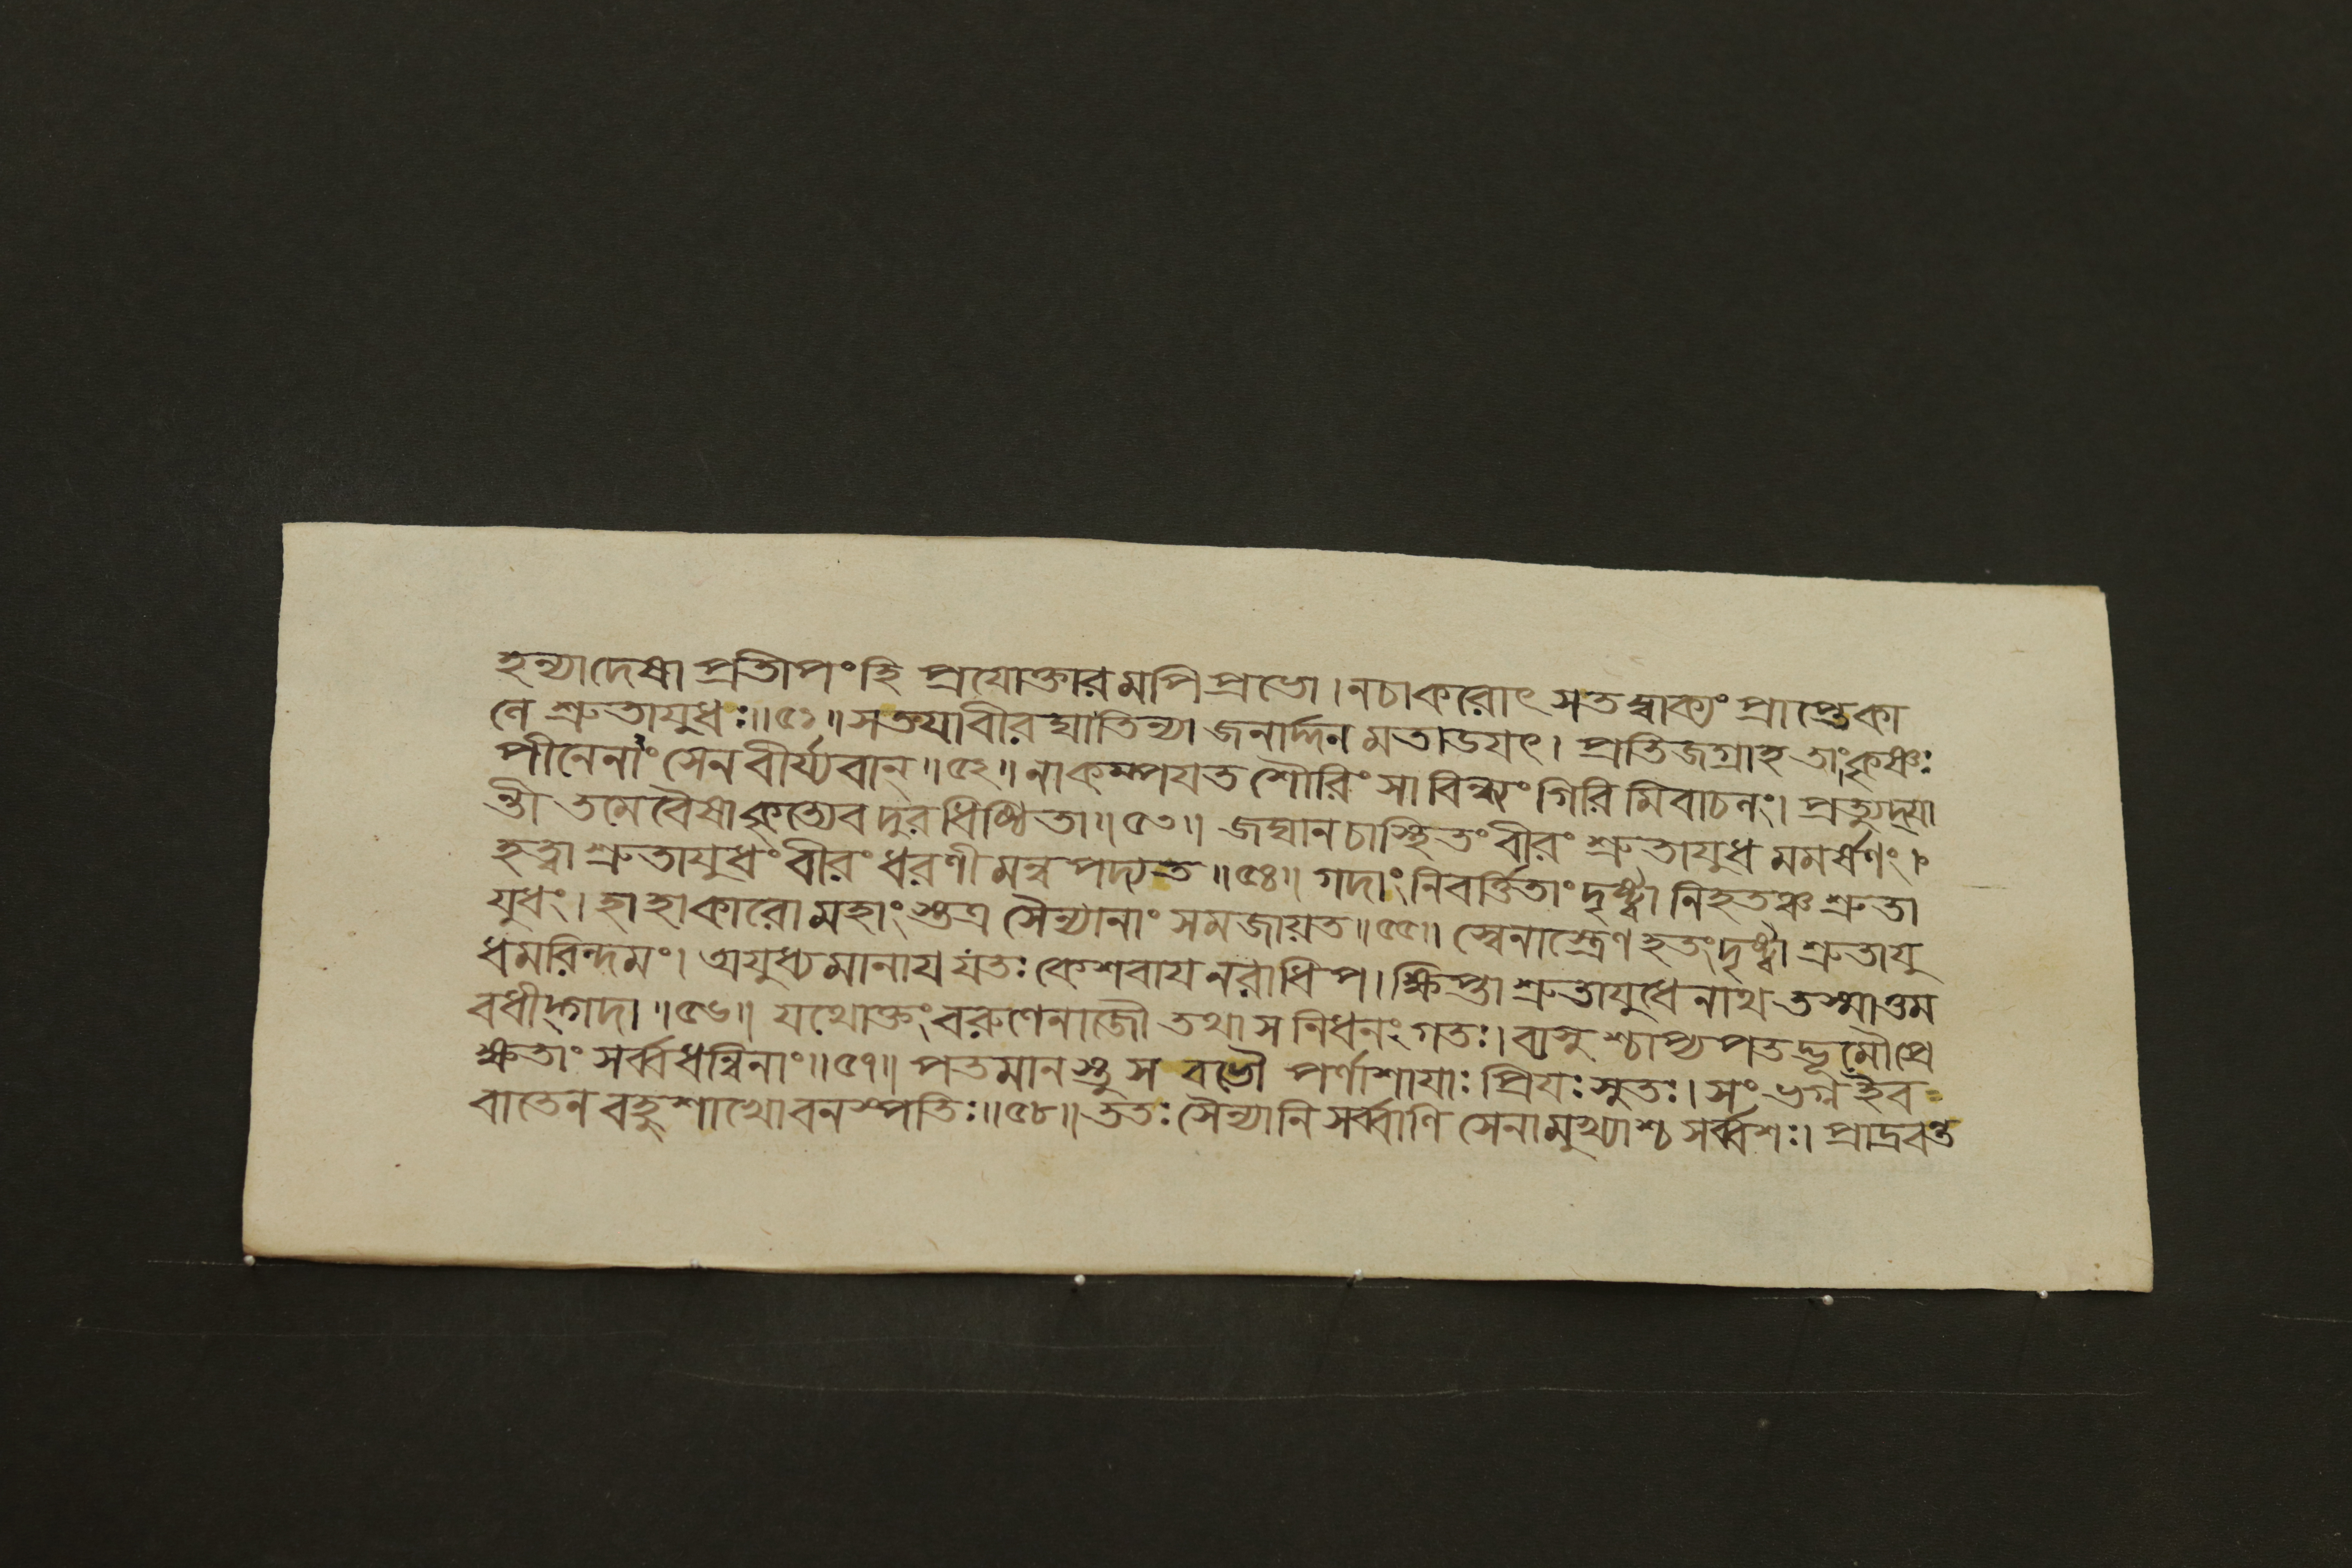 হন্যাদেষা প্রতীপংহি প্রযোক্তারমপি প্রভো। নচাকরোৎ সতদ্বাক্যং প্রাপ্তেকা
লে শ্রুতাযুধঃ॥৫১॥ সতযাবীরঘাতিন্যা জনার্দ্দনমতাডযৎ। প্রতিজগ্রাহ তাংকৃষ্ণঃ
পীনেনাংসেন বীর্য্যবান্॥৫২॥ নাকম্পযত শৌরিং সা বিন্ধ্যংগিরিমিবাচলং। প্রত্যুদ্যা
ন্তী তমেবৈষাকৃত্যেব দুরধিষ্ঠিতা॥৫৩॥ জঘানচাস্থিতংবীরং শ্রুতাযুধমমর্ষণং।
হত্বা শ্রুতাযুধংবীরংধরণীমন্বপদ্যত॥৫৪॥ গদাংনিবর্ত্তিতাংদৃষ্ট্বা নিহতঞ্চ শ্রুতা
যুধং। হাহাকারোমহাংস্তত্র সৈন্যানাং সমজায়ত॥৫৫॥ স্বেনাস্ত্রেণ হতংদৃষ্ট্বা শ্রুতাযু
ধমরিন্দমং। অযুধ্যমানায যতঃ কেশবায নরাধিপ। ক্ষিপ্তা শ্রুতাযুধেনাথ তস্মাত্তম
বধীদ্গদা॥৫৬॥ যথোক্তংবরুণেনাজৌ তথা স নিধনং গতঃ। ব্যসুশ্চাপ্যপতদ্ভূমৌপ্রে
ক্ষতাং সর্ব্বধন্বিনাং॥৫৭॥ পতমানস্তু স বভৌ পর্ণাশাযাঃ প্রিযঃ সুতঃ। সংভগ্ন ইব
বাতেন বহুশাখো বনস্পতিঃ॥৫৮॥ ততঃ সৈন্যানি সর্ব্বাণি সেনামুখ্যাশ্চ সর্ব্বশঃ। প্রাদ্রবন্ত